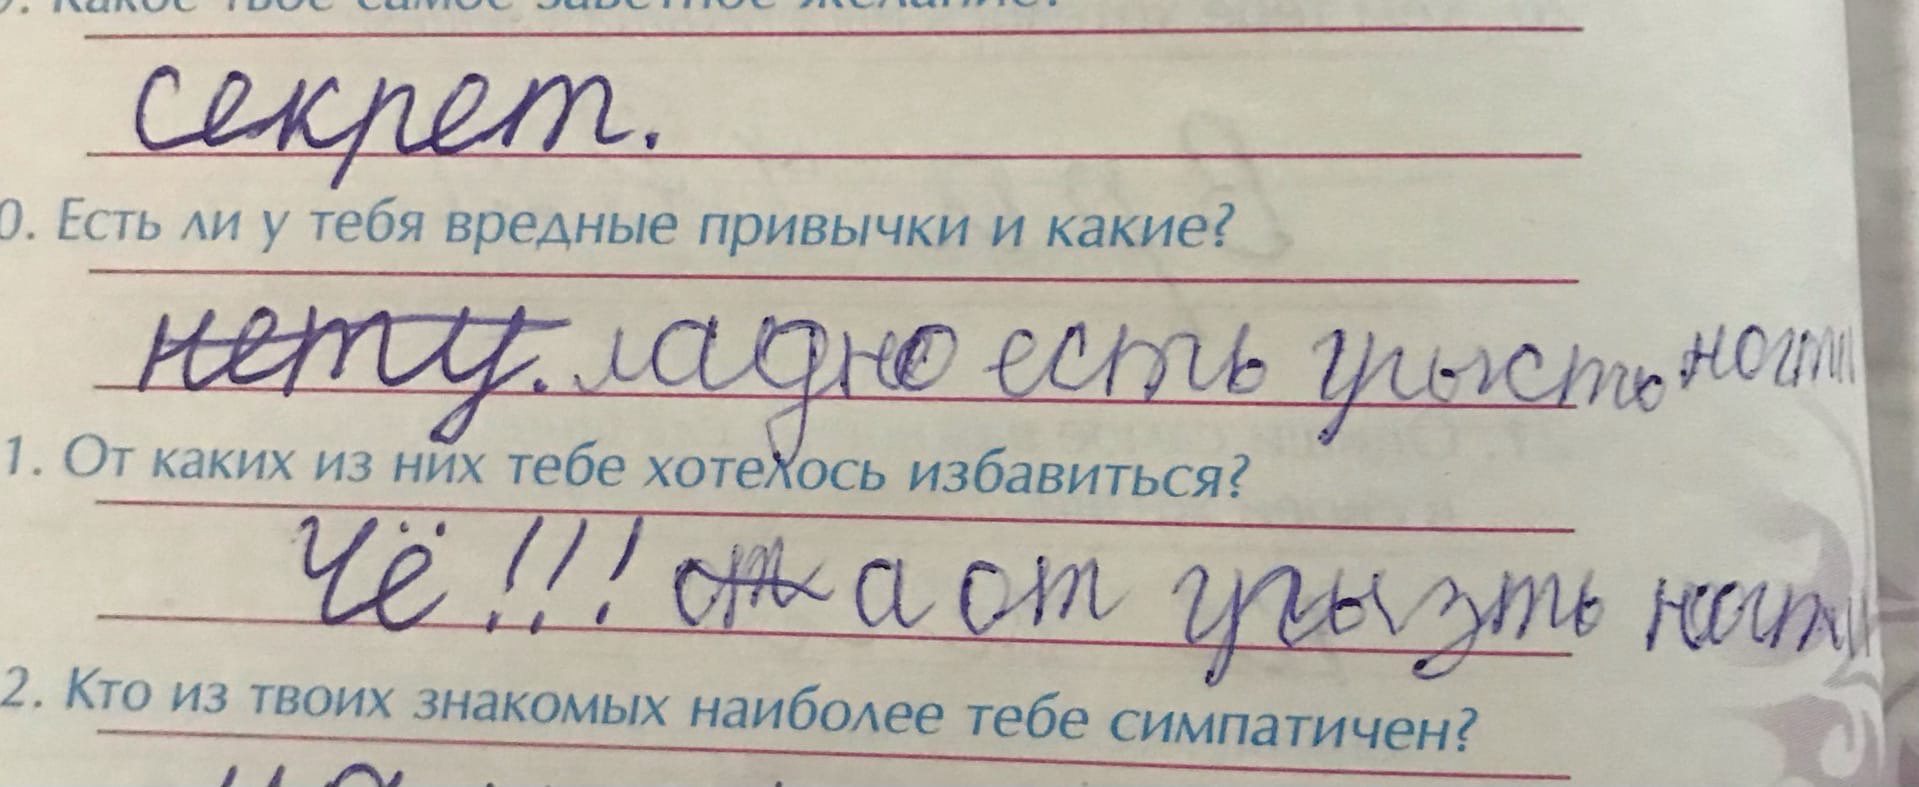 9. Какое твоё самое заветное желание?
секрет.
0. Есть ли у тебя вредные привычки и какие?
нету. ладно есть грысть ногти
1. От каких из них тебе хотелось избавиться?
Чё!!! а от грызть ногти
2. Кто из твоих знакомых наиболее тебе симпатичен?